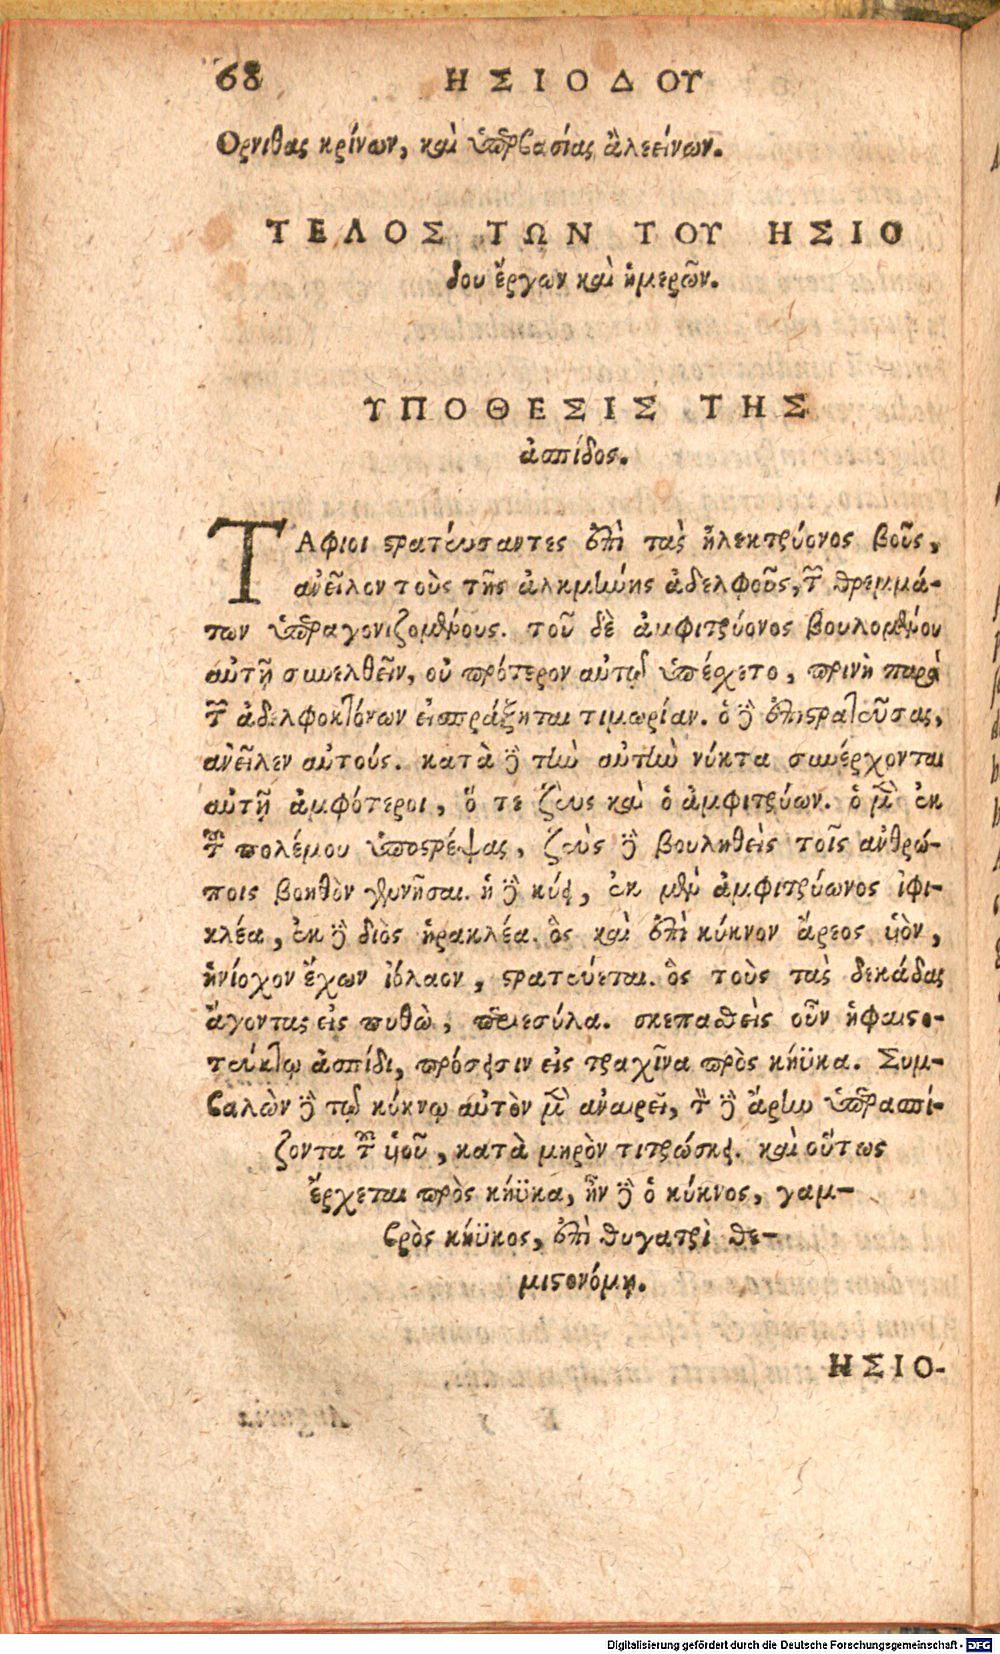 68 ΗΣΙΟΔΟΥ
Ορνιθας κρίνων, καὶ ὑπὲρβασίας ἀλεείνων.
ΤΕΛΟΣ ΤΩΝ ΤΟΥ ΗΣΙΟ
δου ἔργων καὶ ἡμερῶν.
ΥΠΟΘΕΣΙΣ ΤΗΣ
ἀσπίδος.
ΤΑφιοι στρατεύσαντες ἐπὶ τὰς ἠλεκτρύονος βοῦς,
ἀνεῖλον τοὺς τῆς ἀλκμήνης ἀδελφοῦς, τῶν θρεμμά-
των ὑπεραγονιζομένους. τοῦ δὲ ἀμφιτρύονος βουλομένου
αὐτῇ συνελθεῖν, οὐ πρότερον αὐτῷ ὑπέσχετο, πρινὴ παρὰ
τῶν ἀδελφοκτόνων εἰσπράξηται τιμωρίαν. ὁ δὲ ἐπιστρατεῦσας,
ἀνεῖλεν αὐτούς. κατὰ δὲ τὴν αὐτὴν νύκτα συνέρχονται
αὐτῇ ἀμφότεροι, ὅ τε ζεὺς καὶ ὁ ἀμφιτρύων. ὁ μὲν ἐκ
τοῦ πολέμου ὑποστρέψας, ζεὺς δὲ βουληθεὶς τοῖς ἀνθρώ-
ποις βοηθὸν γεννῆσαι. ἡ δὲ κύει, ἐκ μὲν ἀμφιτρύωνος ἰφι-
κλέα, ἐκ δὲ διὸς ἡρακλέα. ὃς καὶ ἐπὶ κύκνον ἄρεος υἱὸν,
ἡνίοχον ἔχων ἰόλαον, στρατεύεται. ὃς τοὺς τὰς δεκάδας
ἄγοντας εἰς πυθὼ, περιεσύλα. σκεπασθεὶς οὖν ἡφαιστο-
τεύκτῳ ἀσπίδι, πρόσεισιν εἰς τραχῖνα πρὸς κήϋκα. Συμ-
βαλὼν δὲ τῷ κύκνῳ αὐτὸν μὲν ἀναιρεῖ, τὸν δὲ ἄρην ὑπερασπί-
ζοντα τοῦ υἱοῦ, κατὰ μηρὸν τιτρώσκει. καὶ οὕτως
ἔρχεται πρὸς κήϋκα, ἦν δὲ ὁ κύκνος, γαμ-
βρὸς κήϋκος, ἐπὶ θυγατρὶ θε-
μιστονόμῃ.
ΗΣΙΟ-
Digitalisierung gefördert durch die Deutsche Forschungsgemeinschaft - DFG